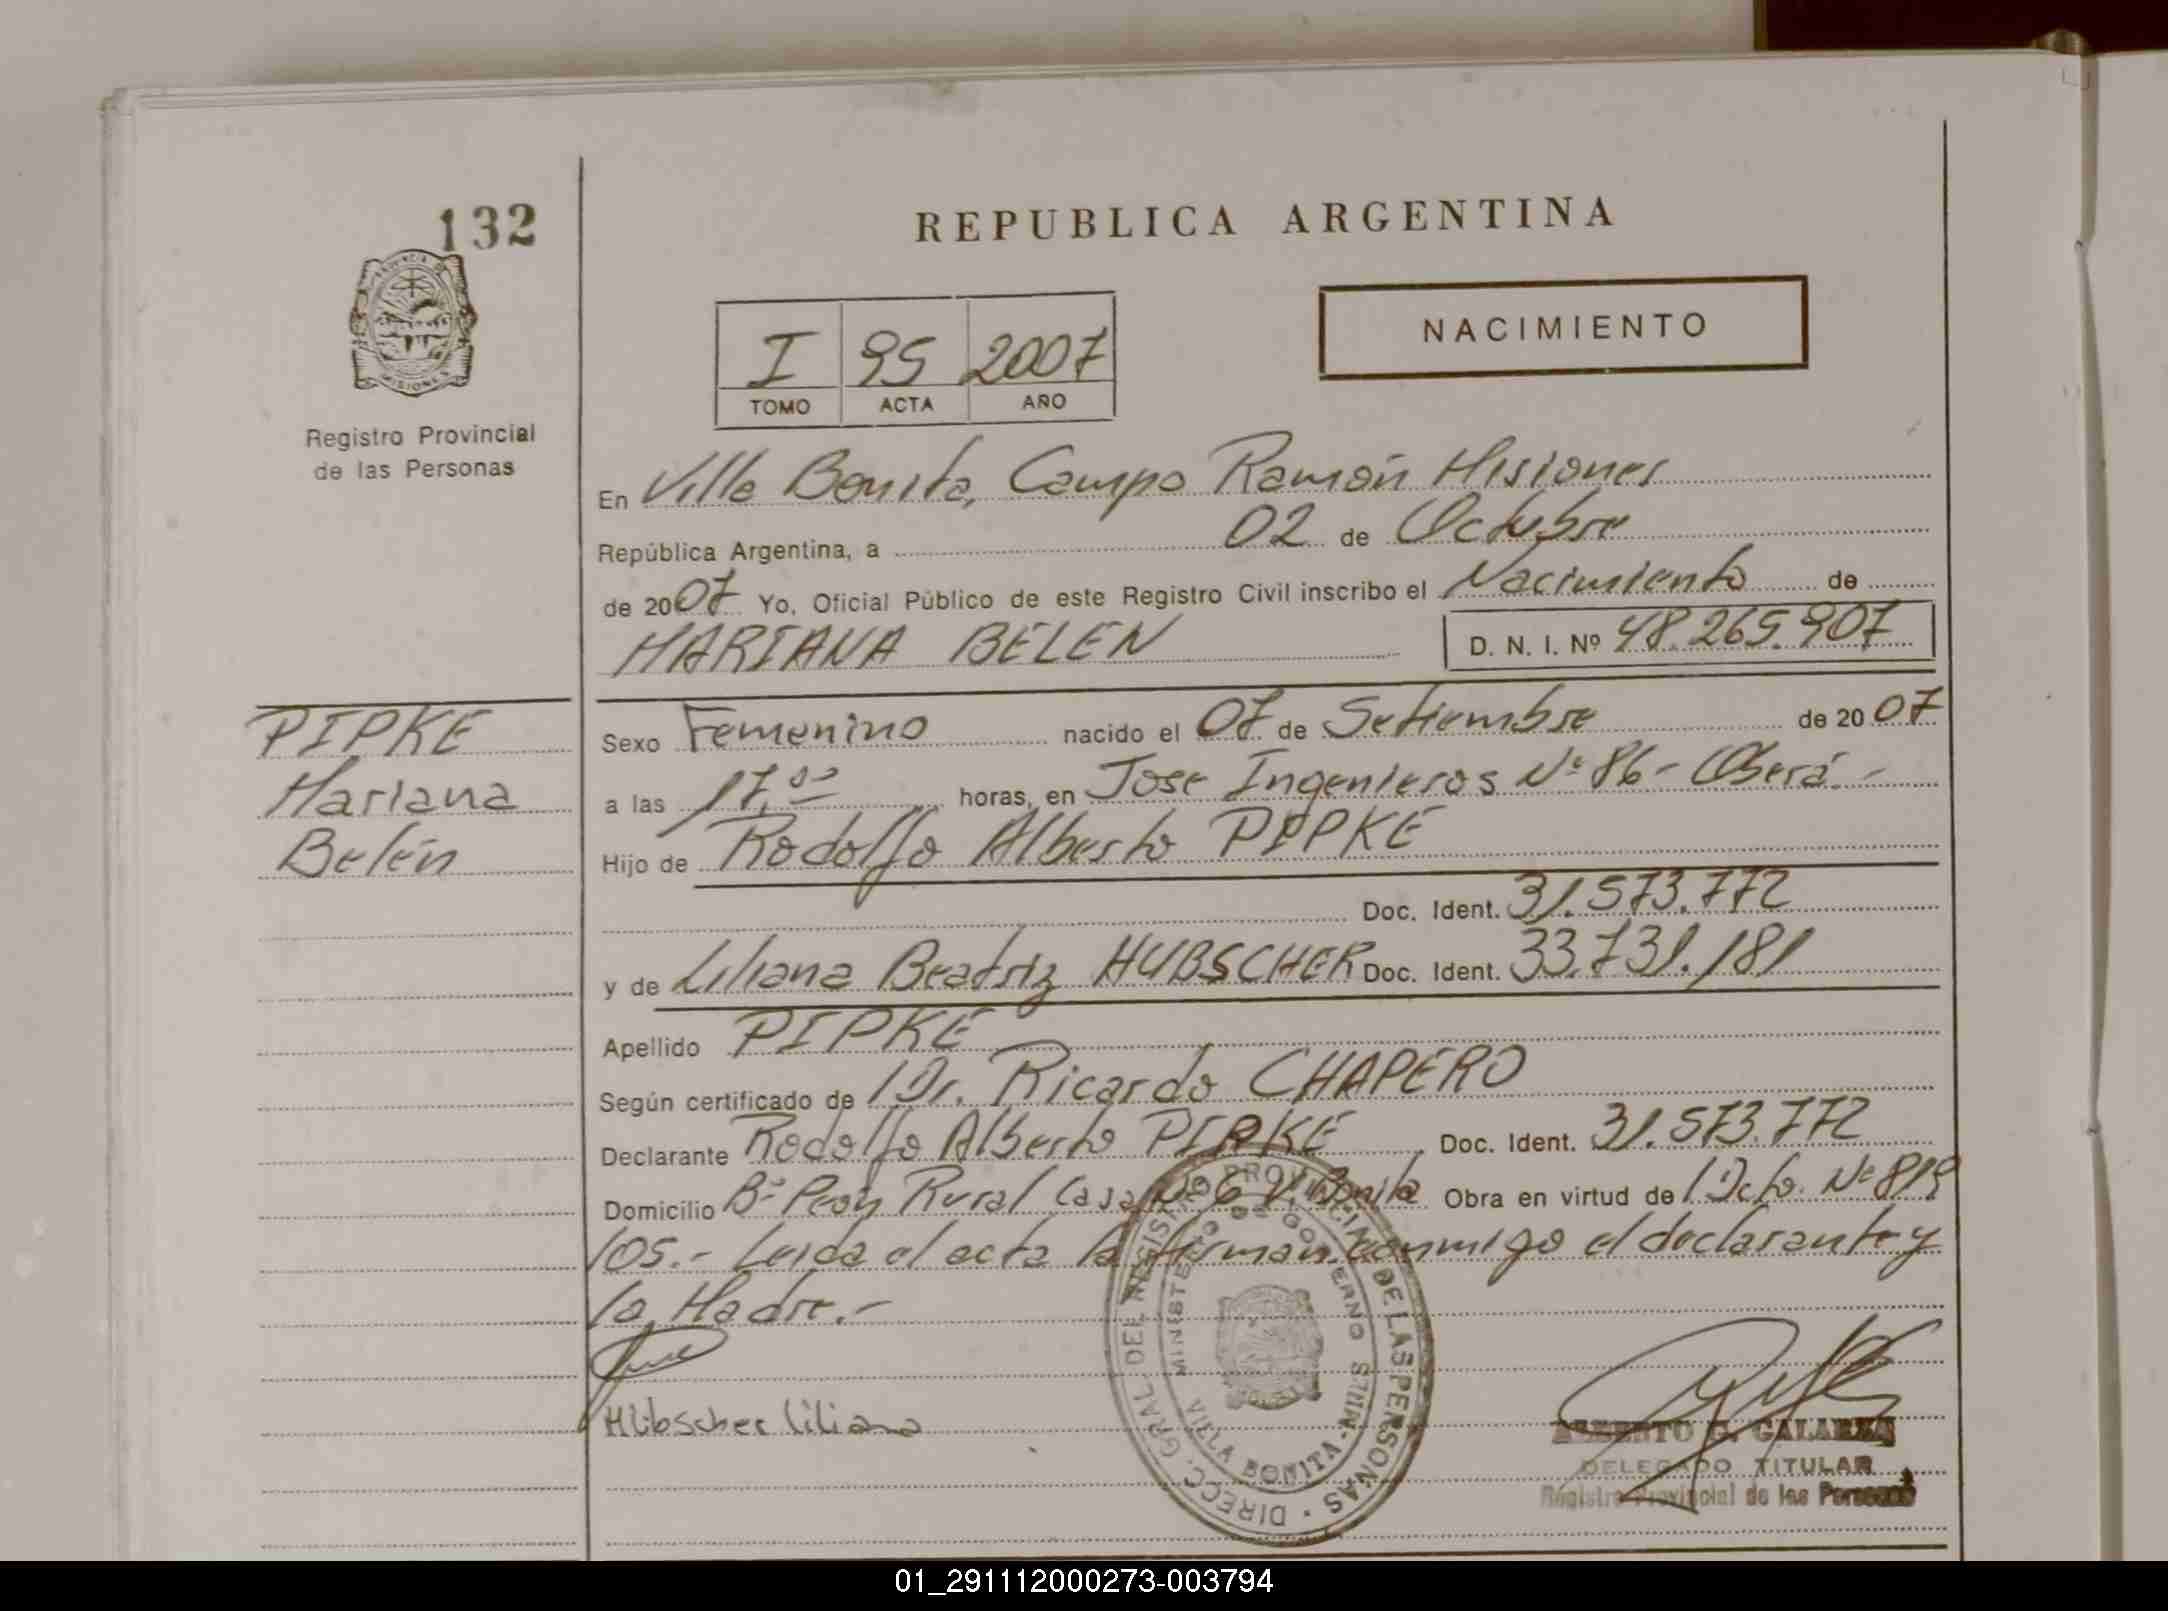 132
REPUBLICA ARGENTINA
NACIMIENTO
I 95 2007
TOMO ACTA AÑO
Registro Provincial
de las Personas
En Villa Bonita, Campo Ramón Misiones
República Argentina, a 02 de Octubre
de 2007 Yo, Oficial Público de este Registro Civil inscribo el Nacimiento de
MARIANA BELÉN D. N. I. Nº 48.265.907
PIPKE
Mariana
Belén
Sexo Femenino nacido el 07 de Setiembre de 2007
a las 17,00 horas, en Jose Ingenieros Nº 86 - Oberá.-
Hijo de Rodolfo Alberto PIPKE
Doc. Ident. 31.573.772
y de Liliana Beatriz HUBSCHER Doc. Ident. 33.731.181
Apellido PIPKE
Según certificado de Dr. Ricardo CHAPERO
Declarante Rodolfo Alberto PIPKE Doc. Ident. 31.573.772
Domicilio Bº Peón Rural Casa Nº 6 V. Bonita Obra en virtud de Dcto. Nº 819
105.- Leida el acta la firman conmigo el declarante y
la Madre.-
Hübscher Liliana
DIRECC. GRAL. DEL REGISTRO PROVINCIAL DE LAS PERSONAS
MINISTERIO DE GOBIERNO
VILLA BONITA - MNES
ALBERTO G. GALARZA
DELEGADO TITULAR
Registro Provincial de las Personas
01_291112000273-003794